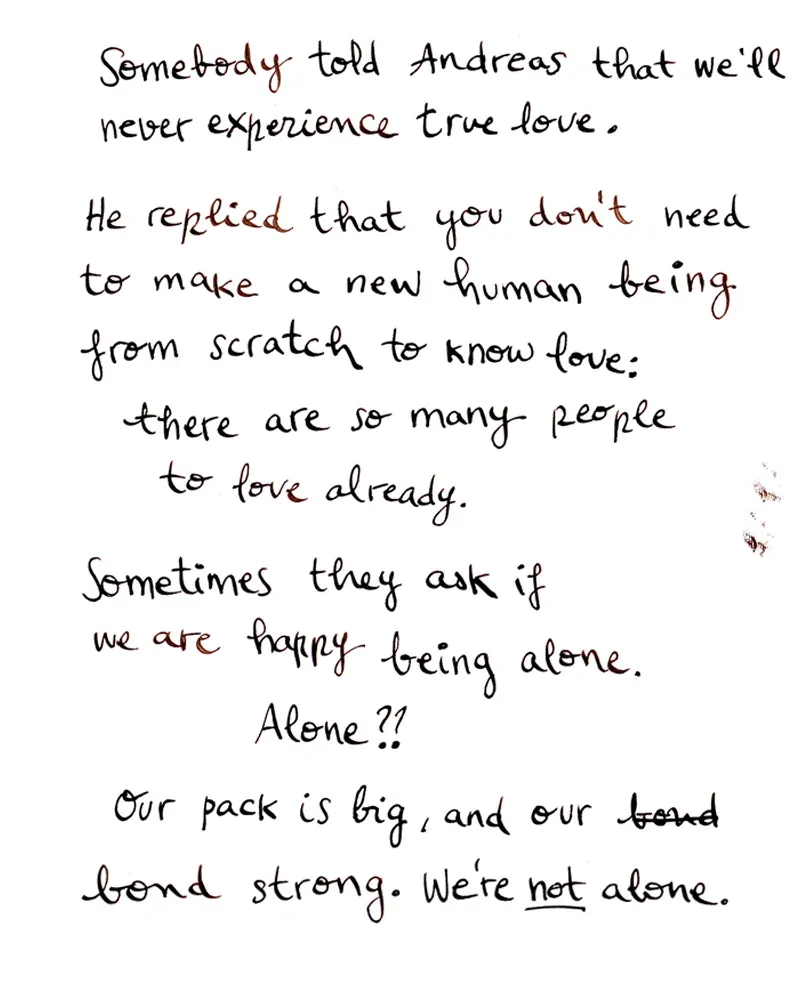 Somebody told Andreas that we'll
never experience true love.
He replied that you don't need
to make a new human being
from scratch to know love:
there are so many people
to love already.
Sometimes they ask if
we are happy being alone.
Alone?!
Our pack is big, and our bond
bond strong. We're not alone.